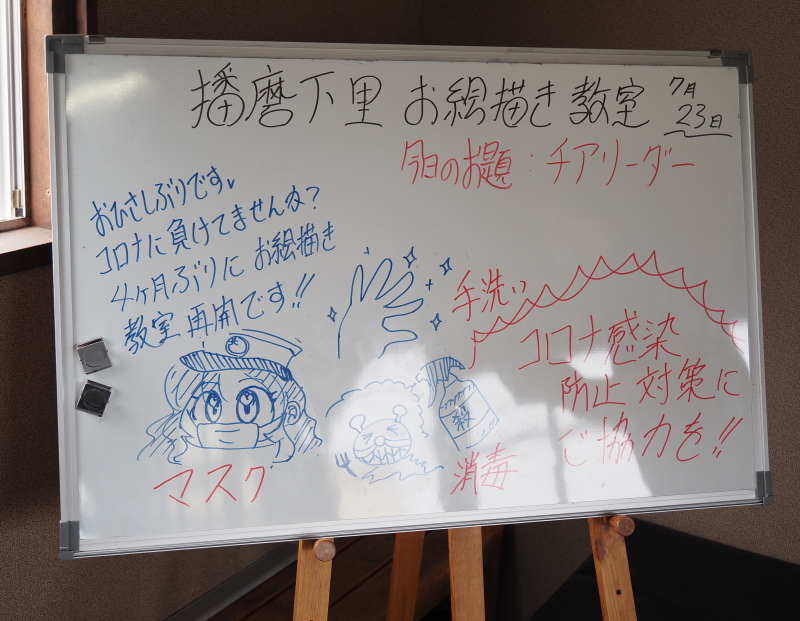 播磨下里 お絵描き教室 7月23日
今日のお題：チアリーダー
おひさしぶりです。
コロナに負けてませんか？
4ヶ月ぶりに お絵描き
教室 再開です!!
手洗い
コロナ感染
防止 対策に
ご協力を!!
殺
マスク
消毒